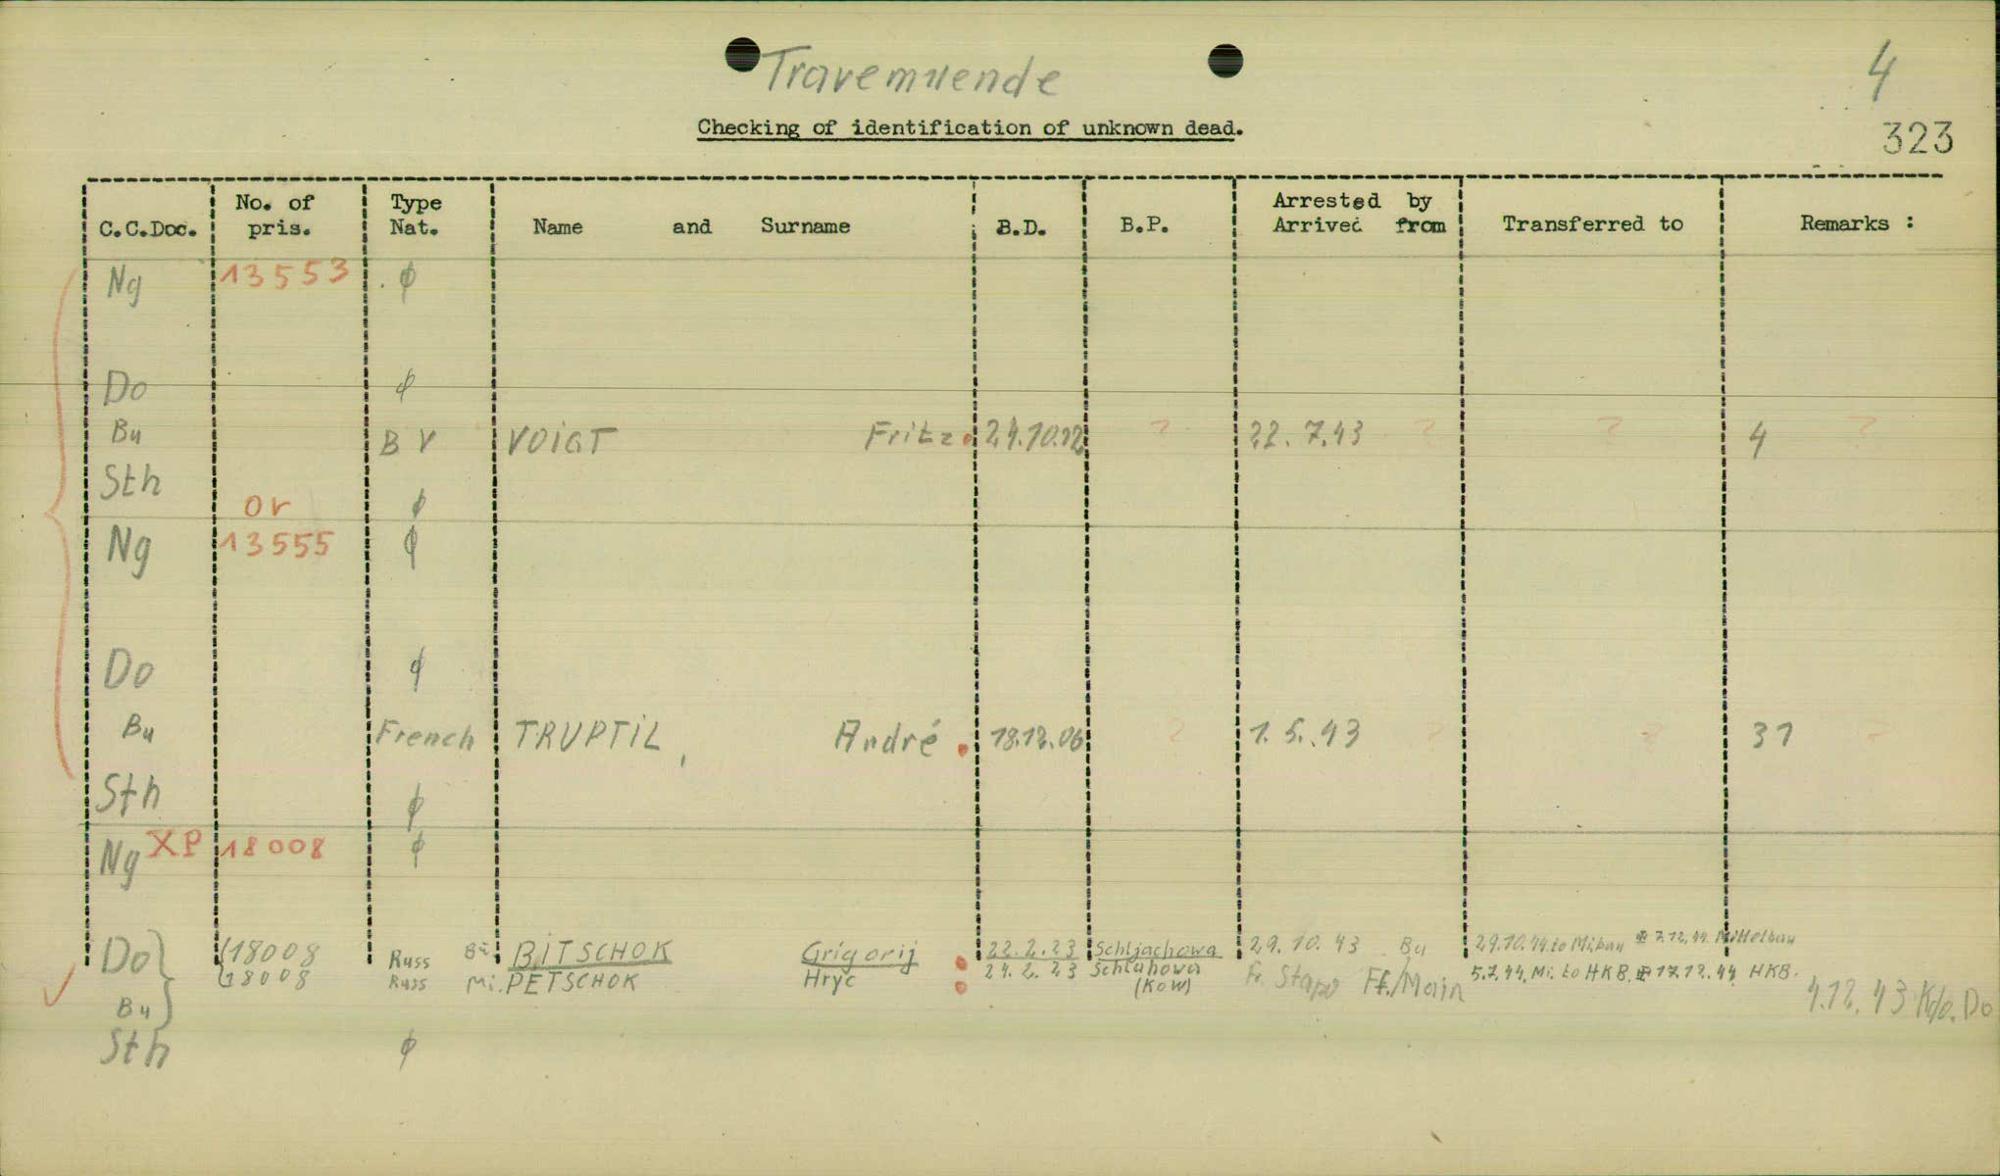 Travemuende
4
Checking of identification of unknown dead.
323
C.C.Doc. No. of pris. Type Nat. Name and Surname B.D. B.P. Arrested by Arrived from Transferred to Remarks :
Ng 13553 ϕ
Do ϕ
Bu BV VOIGT Fritz 24.10.12 ? 22.7.43 ? ? 4 ?
Sth ϕ
or
Ng 13555 ϕ
Do ϕ
Bu French TRUPTIL, André 18.12.06 ? 1.5.43 ? ? 31 ?
Sth ϕ
Ng XP 18008 ϕ
Do 18008 Russ BITSCHOK Grigorij 22.2.23 Schljachowa 29.10.43 Bu 29.10.44 to Mibau 7.12.44 Mittelbau
18008 Russ Mi. PETSCHOK Hryc 24.2.23 Schlahowa (Kow) Fr. Stapo Ff./Main 5.7.44. Mi. to HKB. 17.12.44 HKB.
Bu 4.12.43 Kdo. Do
Sth ϕ